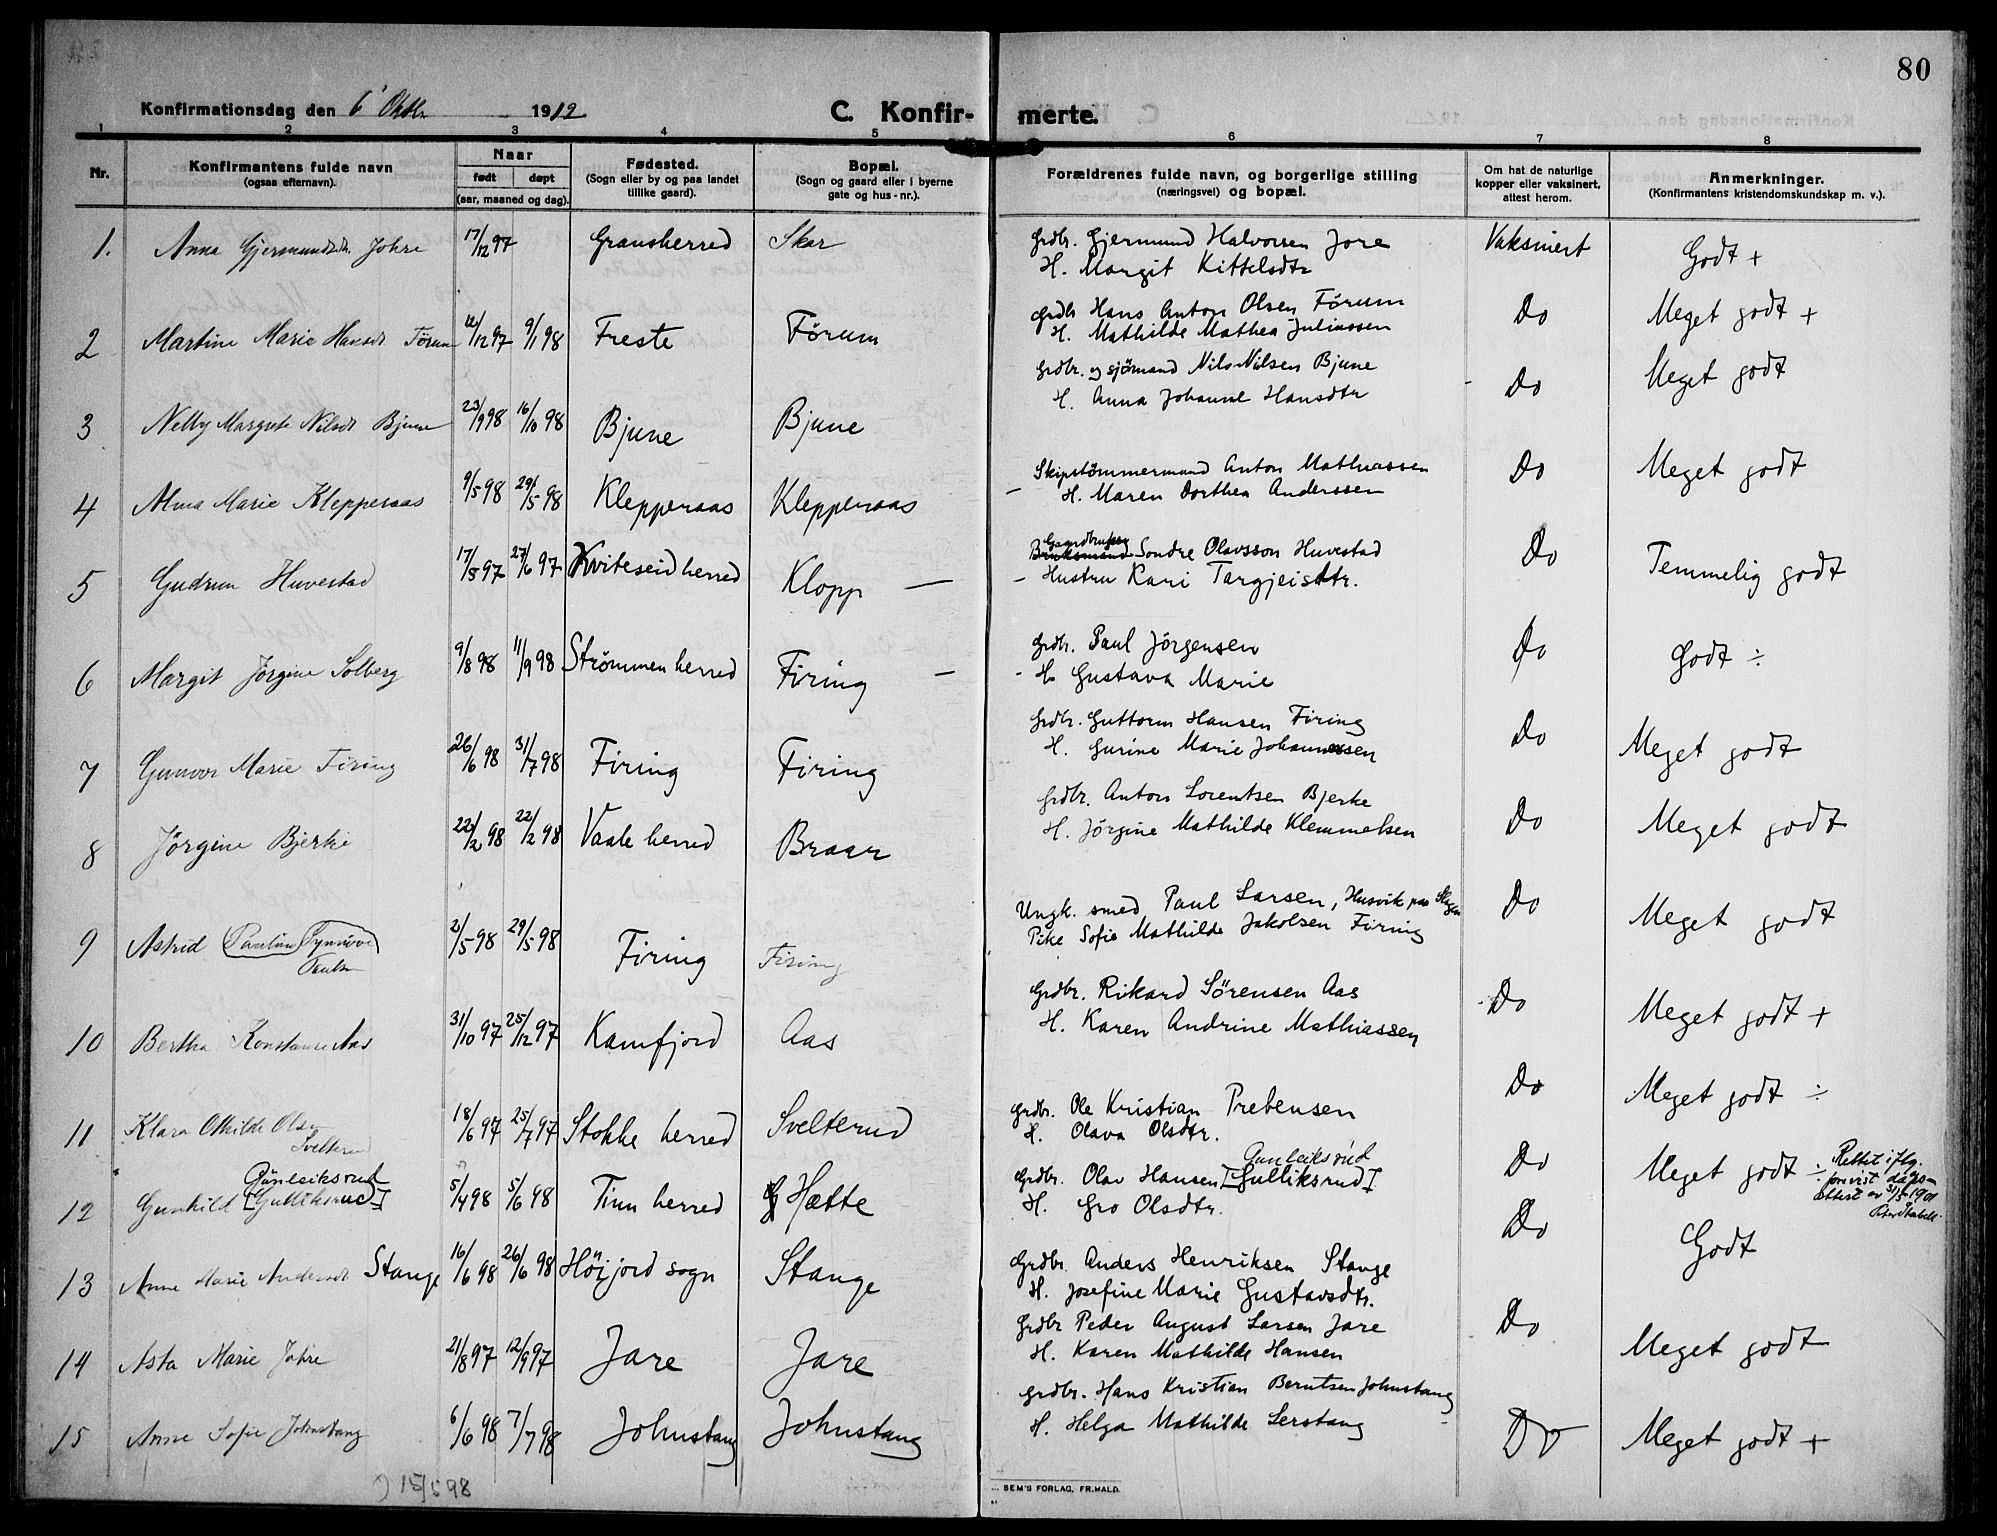 80
Konfirmationsdag den 6' Oktbr. 1912 C. Konfir- merte.
1 2 3 4 5 6 7 8
Nr. Konfirmantens fulde navn (ogsaa efternavn). Naar født døpt (aar, maaned og dag). Fødested. (Sogn eller by og paa landet tillike gaard). Bopæl. (Sogn og gaard eller i byerne gate og hus-nr.). Forældrenes fulde navn, og borgerlige stilling (næringsvei) og bopæl. Om hat de naturlige kopper eller vaksinert, attest herom. Anmerkninger. (Konfirmantens kristendomskundskap m. v.).
1. Anna Gjermundsdtr. Johre 17/12 97 Gransherred Skar Grdbr. Gjermund Halvorsen Jore Vaksinert Godt +
H. Margit Kittelsdtr
2 Martine Marie Hansdr Førum /12 97 9/1 98 Freste Førum Grdbr Hans Anton Olsen Førum Do Meget godt +
H. Mathilde Mathea Juliussen
3 Nelly Margrete Nilsdr Bjune 23/9 98 16/10 98 Bjune Bjune Grdbr. og sjømand Nils Nilsen Bjune Do Meget godt
H. Anna Johanne Hansdtr
4 Alma Marie Klepperaas 9/5 98 29/5 98 Klepperaas Klepperaas Skipstømmermand Anton Mathiassen Do Meget godt
H. Maren Dorthea Anderssen
5 Gudrun Huvestad 17/5 97 27/6 97 Kviteseid herred Klopp — Bruksmand Sondre Olavsson Huvestad Do Temmelig godt
Hustru Kari Targjeisdtr.
6 Margit Jørgine Solberg 9/8 98 11/9 98 Strømmen herred Firing — Grdbr. Paul Jørgensen Do Godt ÷
H. Gustava Marie
7 Gunvor Marie Firing 26/6 98 31/7 98 Firing Firing Grdbr. Guttorm Hansen Firing Do Meget godt
H. Gurine Marie Johannessen
8 Jørgine Bjerke 22/2 98 22/2 98 Vaale herred Braar Grdbr. Anton Lorentsen Bjerke Do Meget godt
H. Jørgine Mathilde Klemmetsen
9 Astrid (Pauline Synnøve) 2/5 98 29/5 98 Firing Firing Ungk. smed Paul Larsen, Husvik paa Slagen Do Meget godt
Paulsen Pike Sofie Mathilde Jakobsen Firing
10 Bertha Konstanse Aas 31/10 97 25/12 97 Kamfjord Aas Grdbr. Rikard Sørensen Aas Do Meget godt +
H. Karen Andrine Mathiassen
11 Klara Othilde Olsen 18/6 97 25/7 97 Stokke herred Svelterud Grdbr. Ole Kristian Prebensen Do Meget godt ÷
Svelterud H. Olava Olsdtr.
Gunleiksrud Gunleiksrud
12 Gunhild [Gulliksrud] 5/4 98 5/6 98 Tinn herred Hætte Grdbr. Olav Hansen [Gulliksrud] Do Meget godt ÷ Rettet iflg. forevist dåps-attest av 31/5-1901
H. Gro Olsdtr.
13 Anne Marie Andersdr Stange 16/6 98 26/6 98 Höijord sogn Stange Grdbr. Anders Henriksen Stange Do Godt
H. Josefine Marie Gustavsdtr.
14 Asta Marie Johre 21/8 97 12/9 97 Jare Jare Grdbr Peder August Larsen Jare Do Meget godt
H. Karen Mathilde Hansen
15 Anne Sofie Johnstang 6/6 98 7/7 98 Johnstang Johnstang Grdbr. Hans Kristian Berntsen Johnstang Do Meget godt +
H. Helga Mathilde Serstang
) 15/5 98
SEM'S FORLAG, FR.HALD.